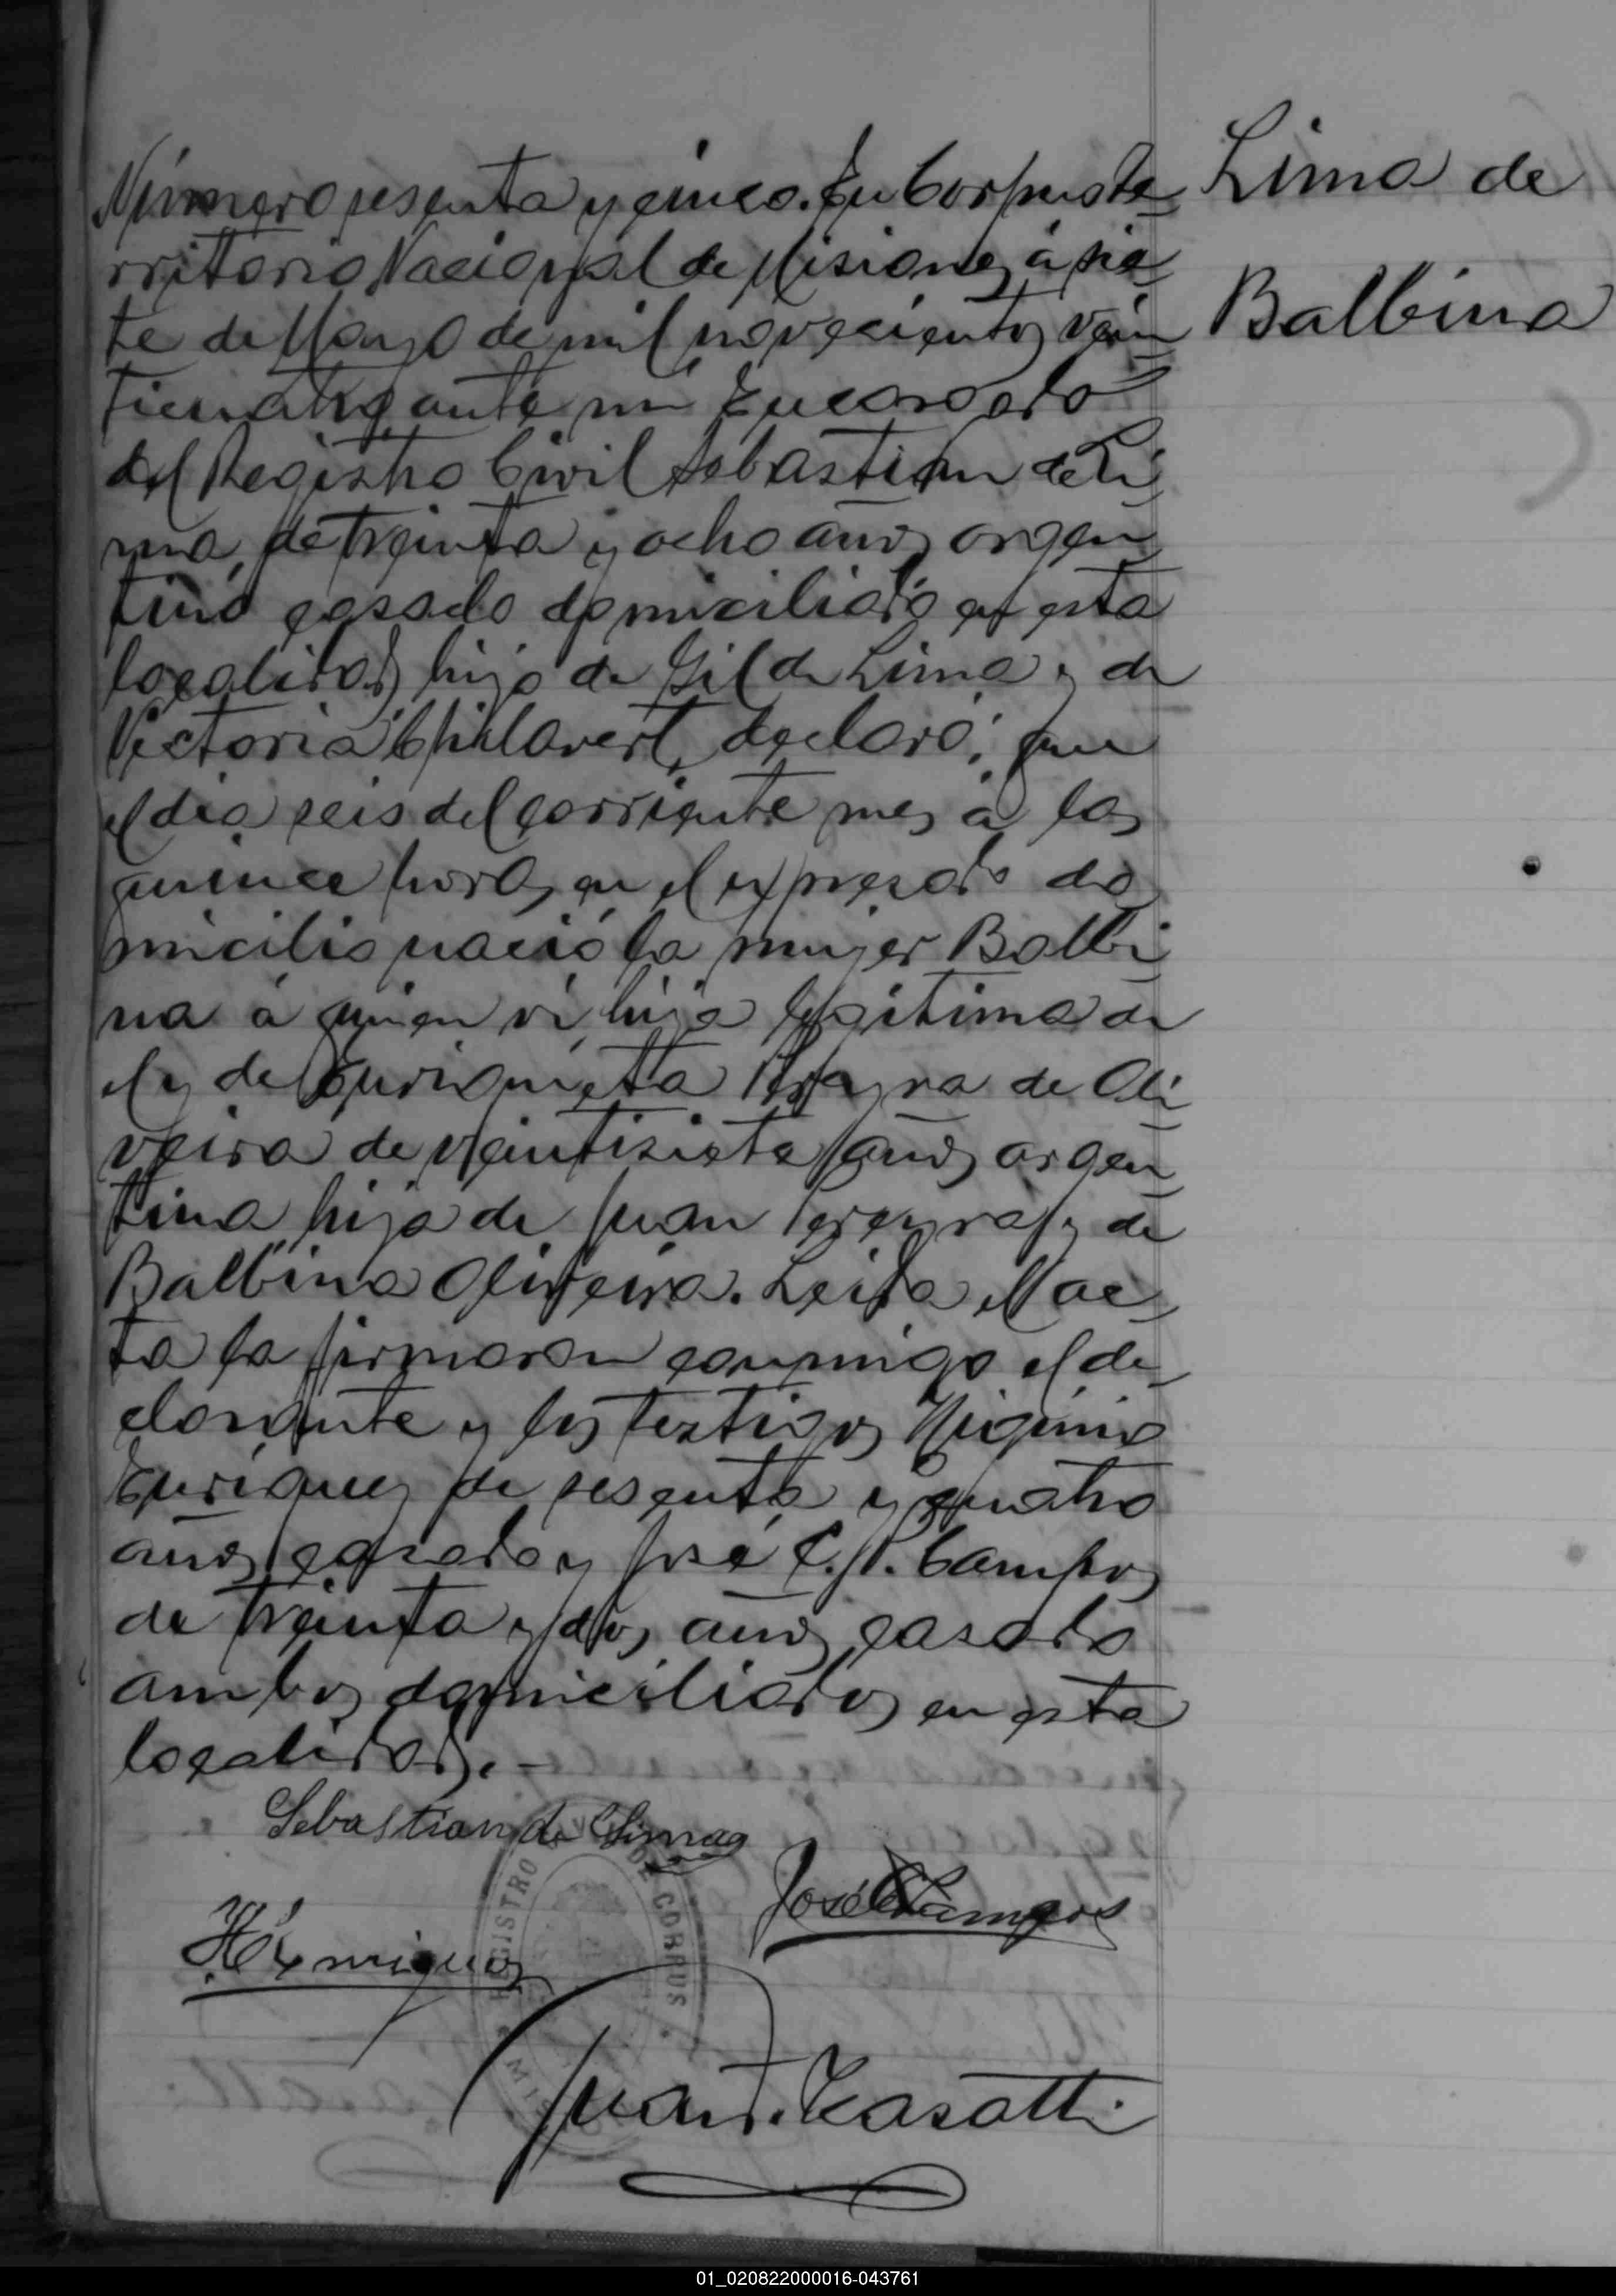 Lima de
Balbina
Número sesenta y cinco. En Corpus te
rritorio Nacional de Misiones, á sie
te de Mayo de mil novecientos vein
ticuatro ante mi Encargado
del Registro Civil Sebastian de Li
ma, de treinta y ocho años argen
tino casado domiciliado en esta
localidad, hijo de Gil de Lima y de
Victoria Chilavert, declaró: que
el dia seis del corriente mes á las
quince horas, en el expresado do
micilio nació la mujer Balbi
na á quien ví, hija legitima de
el y de Enriqueta Pereyra de Oli
veira de veintisiete años, argen
tina, hija de Juan Pereyra y de
Balbina Oliveira. Leida el ac
ta la firmaron conmigo el de
clarante y los testigos Higinio
Enriquez de sesenta y cuatro
años, casado y José C. P. Campos
de treinta y dos años, casado
ambos domiciliados en esta
localidad. -
Sebastian de Lima
José Campos
H Enriquez
REGISTRO CORPUS
Juan Casatti
01_020822000016-043761